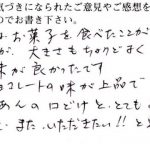 気づきになられたご意見やご感想を
のでお書き下さい。
はお菓子を食べたことが
が、大きさもちょうどよく
味が良かったです
コレートの味が上品で
あんの口どけと、とても
、また、いただきたい!!と